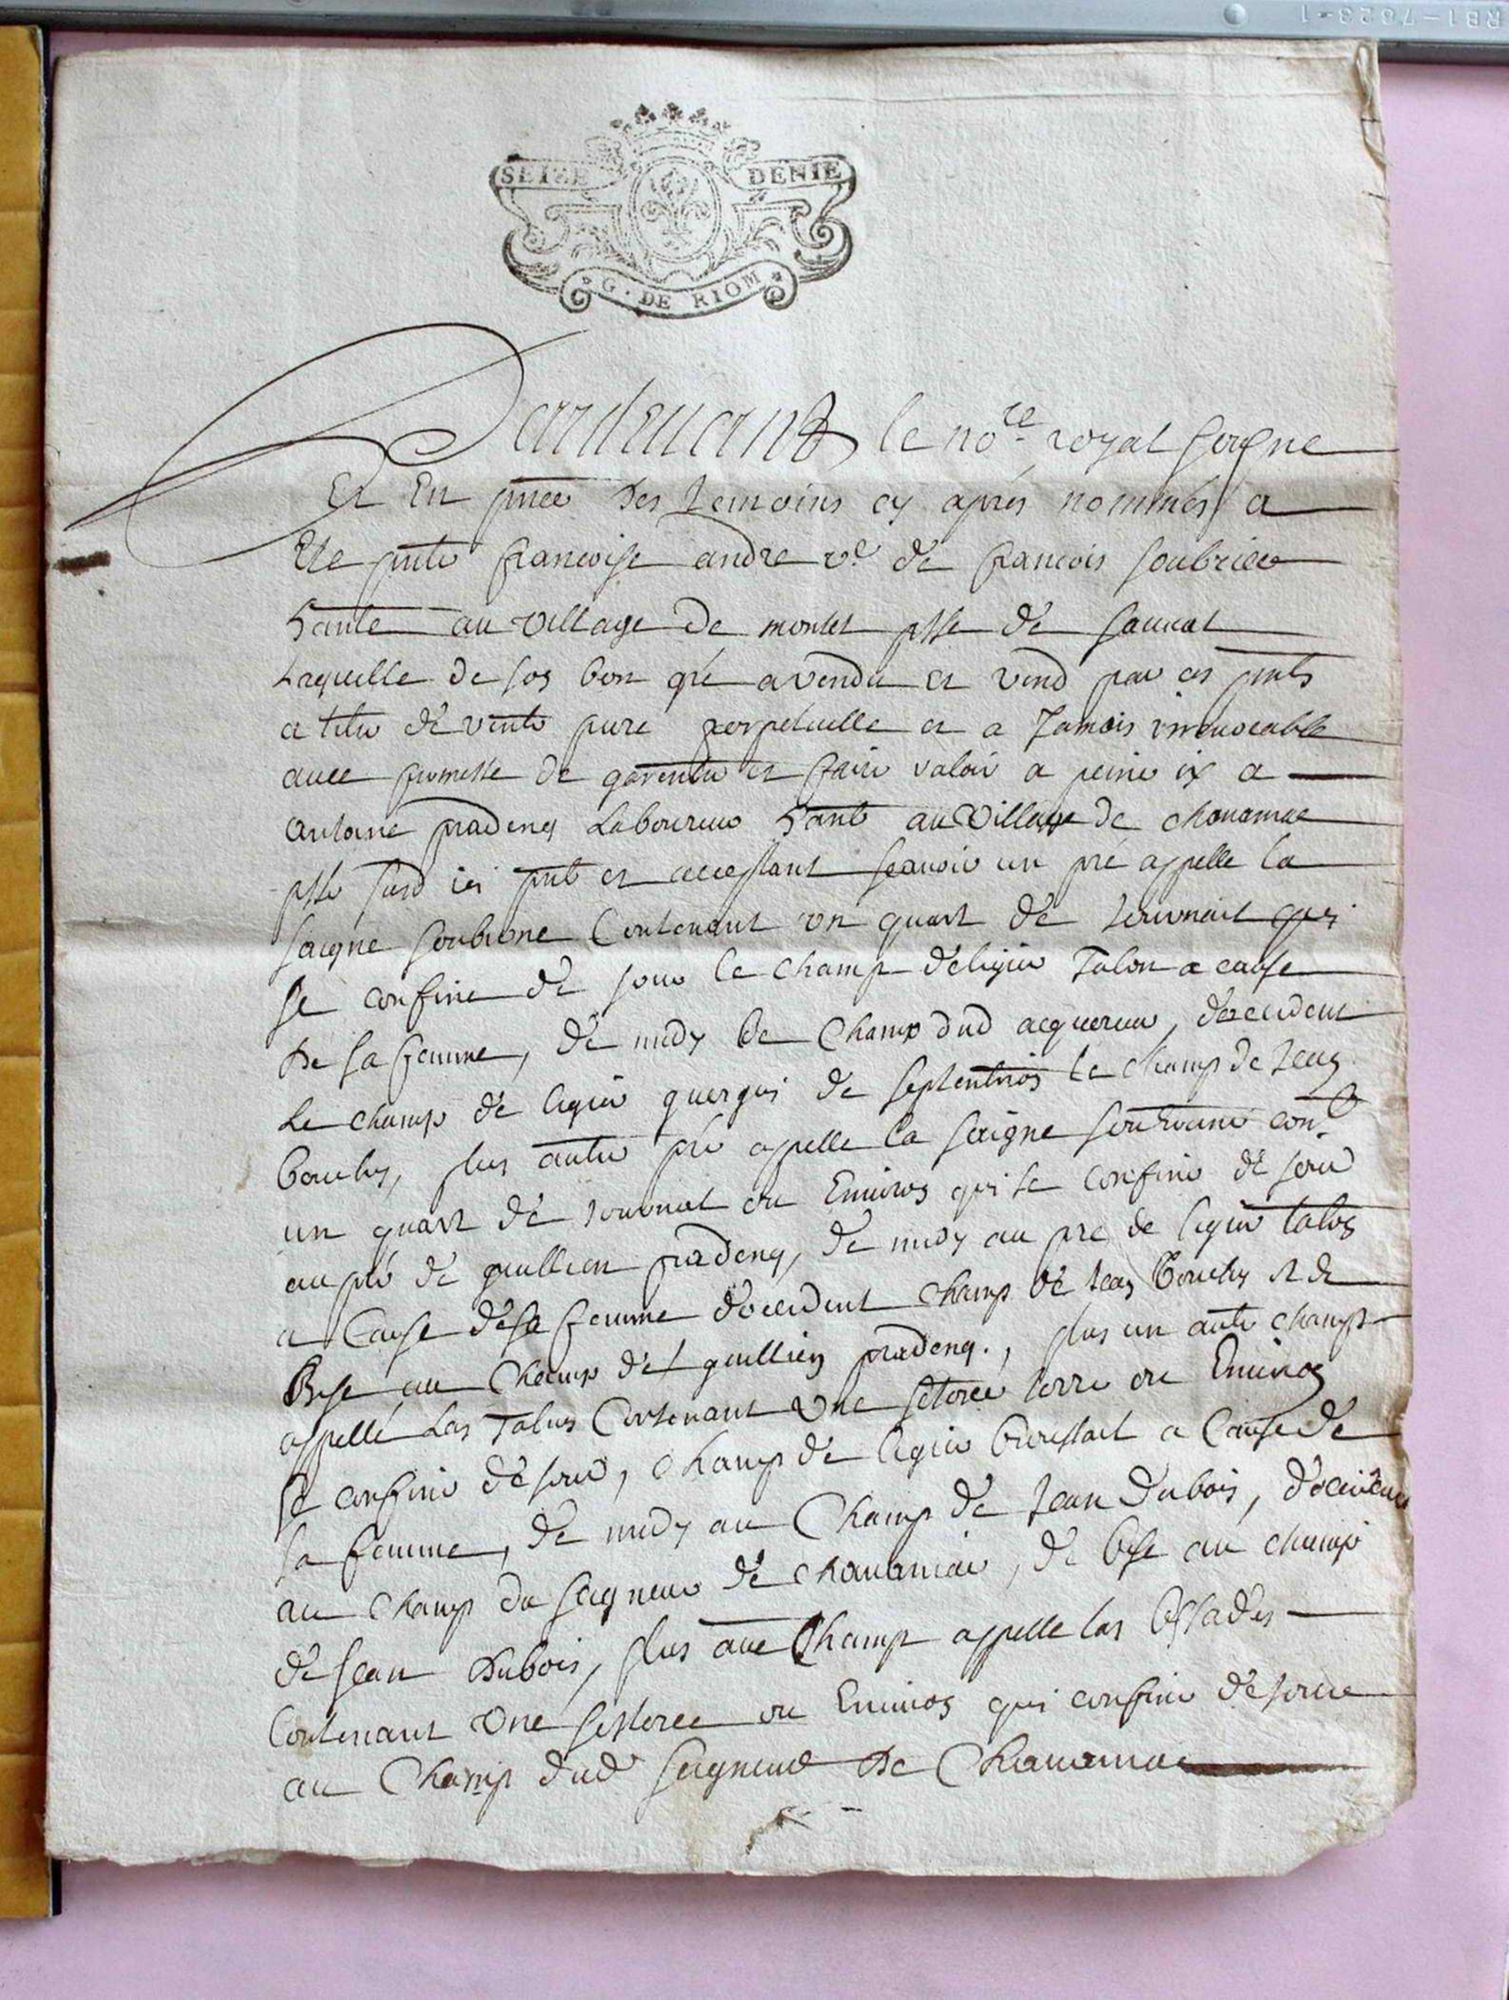 RB1-7623-1
SEIZE DENIE
G. DE RIOM
Pardevant le no.re royal soigne
Et En pnce des temoins cy aprés nommés a
Ete pnte francoise andre v.e de francois soubrier
hante au village de montet psse de sauvat
Laquelle de son bon gré a vendu et vend par ces pnts
a titre de vente pure perpetuelle et a Jamais irrevocable
avec promesse de garentir et faire valoir a peine &c a
antoine pradenq Laboureur hant au village de chavanac
psse susd ici pnt et acceptant scavoir un pré appelle la
saigne soubrone Contenant un quart de journait qui
se confine de jour le champ de ligier Talon a cause
De sa femme, de midy le Champ dud acquereur, d'occident
Le champ de ligier de septentrion le champ de Jean
bouchy, plus autre pré appelle la saigne cont
un quart de journal ou Environ qui se confine de jour
au pré de guillien pradenq, de midy au pre de ligier talon
a Cause de sa femme d'occident champ de Jean bouchy et de
Bise au Champ de guillien pradenq., plus un autre champ
appellé Las Talus Contenant une seteree terre ou Environ
se confine de jour, champ de ligier a Cause de
sa femme, de midy au Champ de Jean Dubois, d'occident
au champ du seigneur de chavanac, de bise au champ
de Jean Dubois, plus autre Champ appelle las
Contenant une septeree ou Environ qui confine de jour
au Champ dud seigneur de Chavanac